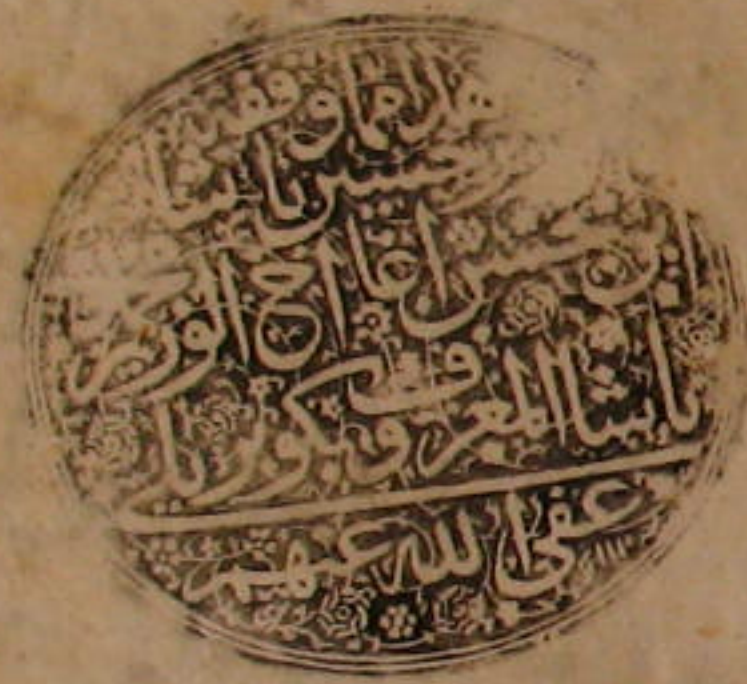 هذا مما وقفه
حسين باشا
ابن حسن اغا اخ الوزير محمد
باشا المعروف بكوپريلي
عفى الله عنهم